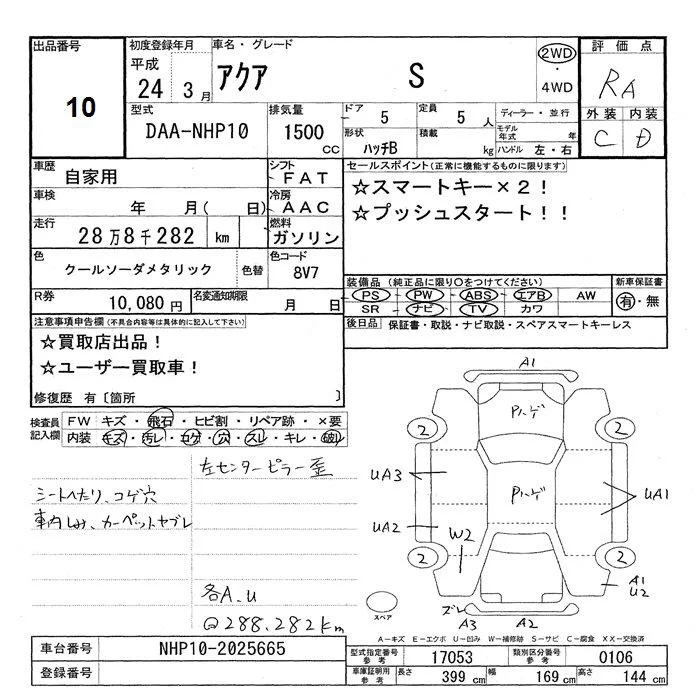 出品番号
10
初度登録年月
平成
24 3月
車名・グレード
アクア S
2WD
・
4WD
評価点
RA
外装 内装
C D
型式
DAA-NHP10
排気量
1500 CC
ドア 5
定員 5 人
形状 ハッチB
積載 kg
ディーラー・並行
モデル年式 年
ハンドル 左・右
車歴
自家用
シフト
FAT
車検
年 月( 日)
冷房
AAC
走行
28万8千282 km
燃料
ガソリン
色
クールソーダメタリック
色替
色コード
8V7
R券
10,080円
名変通知期限
月 日
セールスポイント(正常に機能するものに限ります)
☆スマートキー×2!
☆プッシュスタート!!
装備品 (純正品に限り○をつけてください)
PS - PW - ABS - エアB AW
SR - ナビ - TV - カワ
新車保証書
有・無
後日品 保証書・取説・ナビ取説・スペアスマートキーレス
注意事項申告欄(不具合内容等は具体的に記入して下さい)
☆買取店出品!
☆ユーザー買取車!
修復歴 有〔箇所 〕
検査員
記入欄
FW キズ・飛石・ヒビ割・リペア跡・×要
内装 キズ・汚レ・コゲ・穴・スレ・キレ・破レ
左センターピラー歪
シートへたり、コゲ穴
車内しみ、カーペットヤブレ
各A.U
Q288.282km
A1
Pハゲ
2
2
UA3
Pハゲ
UA1
UA2
W2
2
2
A1
U2
スペア
ズレ
A3
A2
A-キズ E-エクボ U-凹み W-補修跡 S-サビ C-腐食 XX-交換済
車台番号
NHP10-2025665
登録番号
型式指定番号
参考
17053
類別区分番号
参考
0106
車庫証明用
参考
長さ 399 cm
幅 169 cm
高さ 144 cm